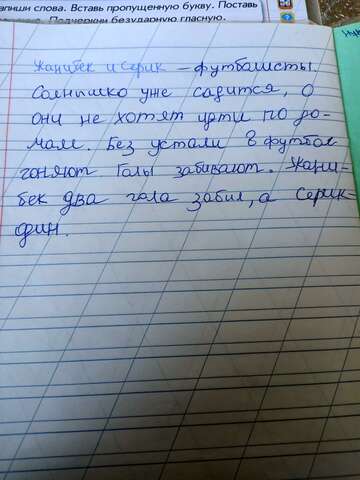 апиши слова. Вставь пропущенную букву. Поставь
Подчеркни безударную гласную.
Жанибек и Серик – футболисты.
Солнышко уже садится, о
они не хотят идти по до-
мам. Без устали в футбол
гоняют. Голы забивают. Жани-
бек два гола забил, а Серик-
дин.